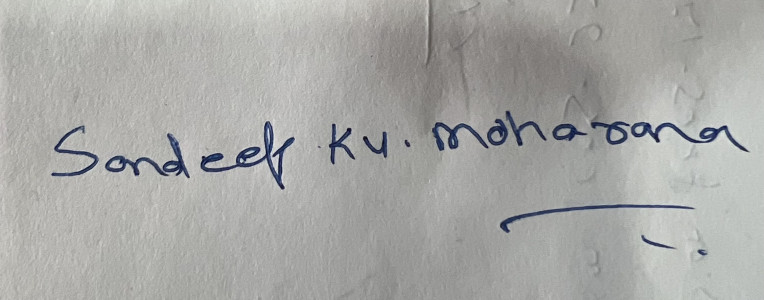 Sandeep Ku. Moharana